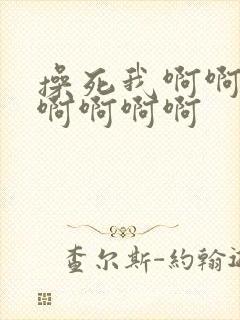 操死我啊啊
啊啊啊啊
查尔斯-約翰